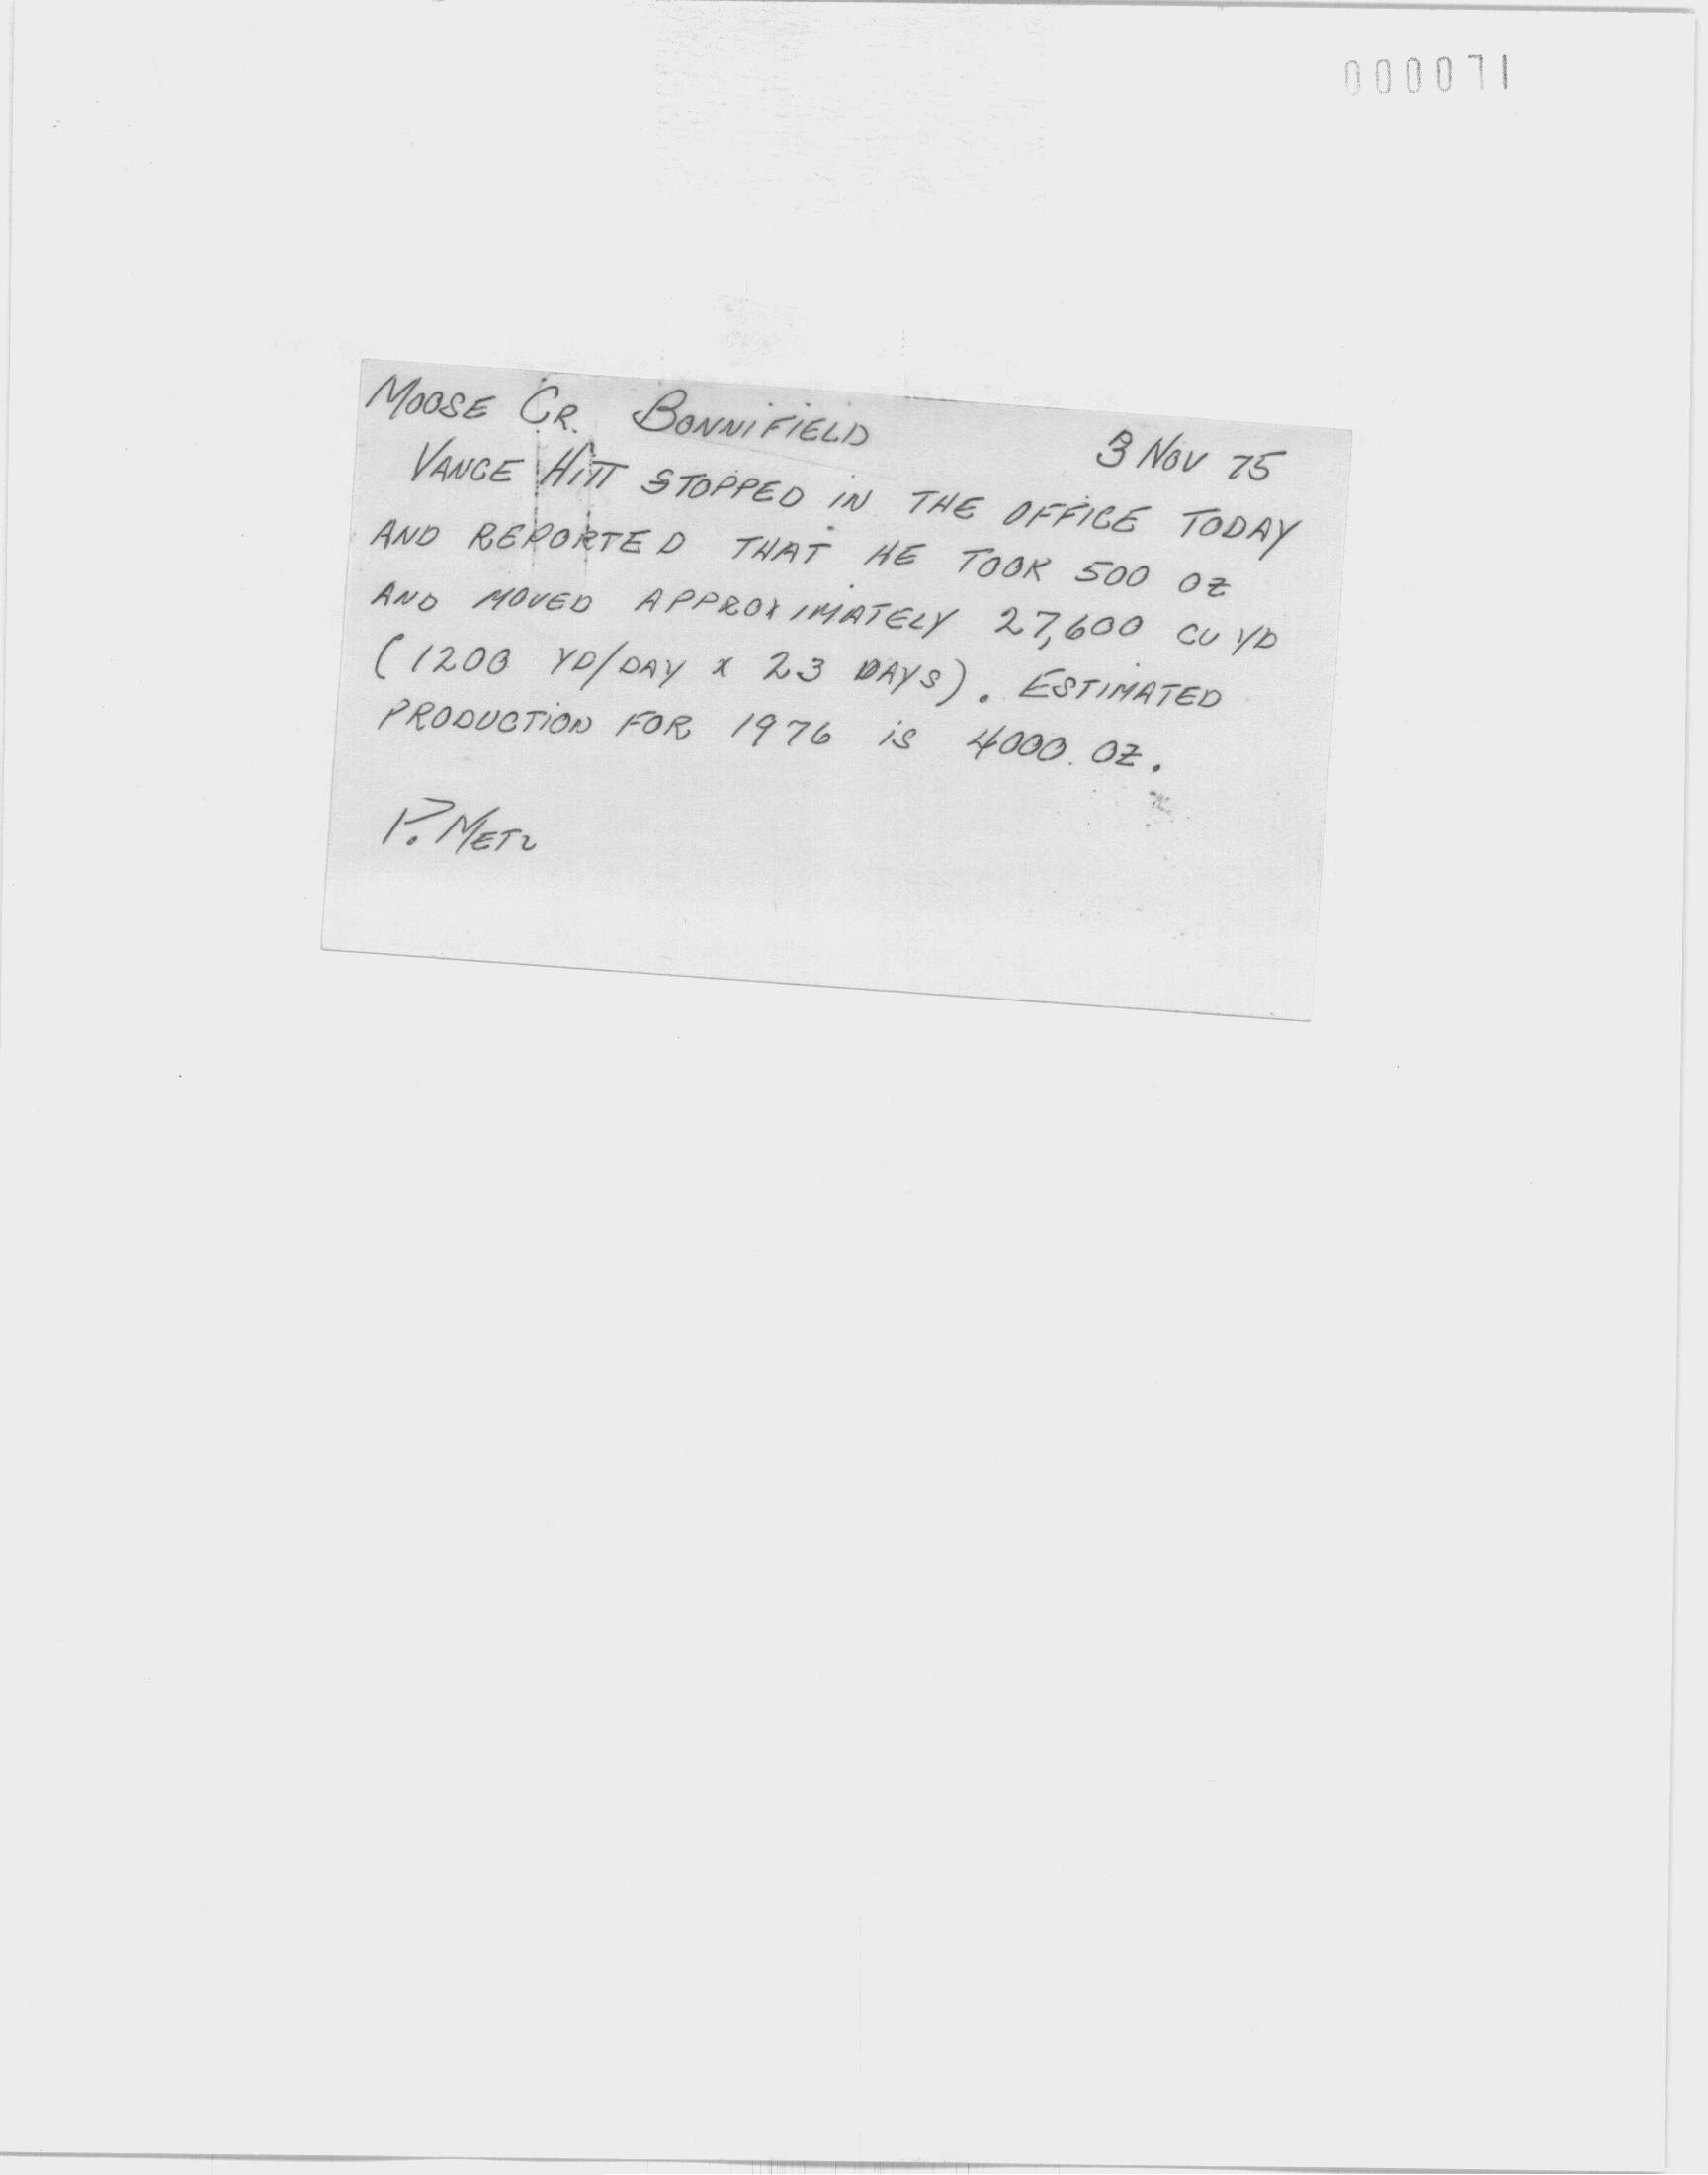 000071
MOOSE CR. BONNIFIELD 3 NOV 75
VANCE HITT STOPPED IN THE OFFICE TODAY
AND REPORTED THAT HE TOOK 500 OZ
AND MOVED APPROXIMATELY 27,600 CU YD
(1200 YD/DAY X 23 DAYS). ESTIMATED
PRODUCTION FOR 1976 IS 4000 OZ.
P. METZ